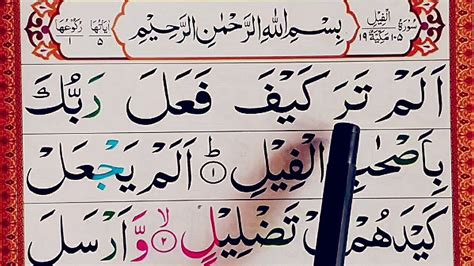 سُوْرَةُ الْفِيْلِ
١٠٥ مَكِّيَّةٌ ١٩
بِسْمِ اللّٰهِ الرَّحْمٰنِ الرَّحِيْمِ
اٰيَاتُهَا ٥
رُكُوْعُهَا ١
اَلَمْ تَرَ كَيْفَ فَعَلَ رَبُّكَ
بِاَصْحٰبِ الْفِيْلِ ؕ ١ اَلَمْ يَجْعَلْ
كَيْدَهُمْ تَضْلِيْلٍ ۙ ٢ وَّاَرْسَلَ